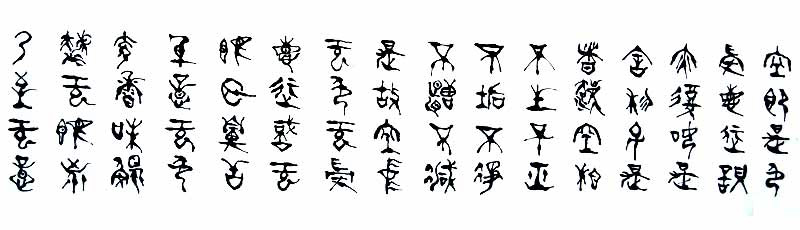 空即是色
受想行識
亦復如是
舍利子是
諸法空相
不生不滅
不垢不淨
不增不減
是故空中
无色无受
想行識无
眼耳鼻舌
身意无色
聲香味觸
法无眼界
乃至无意